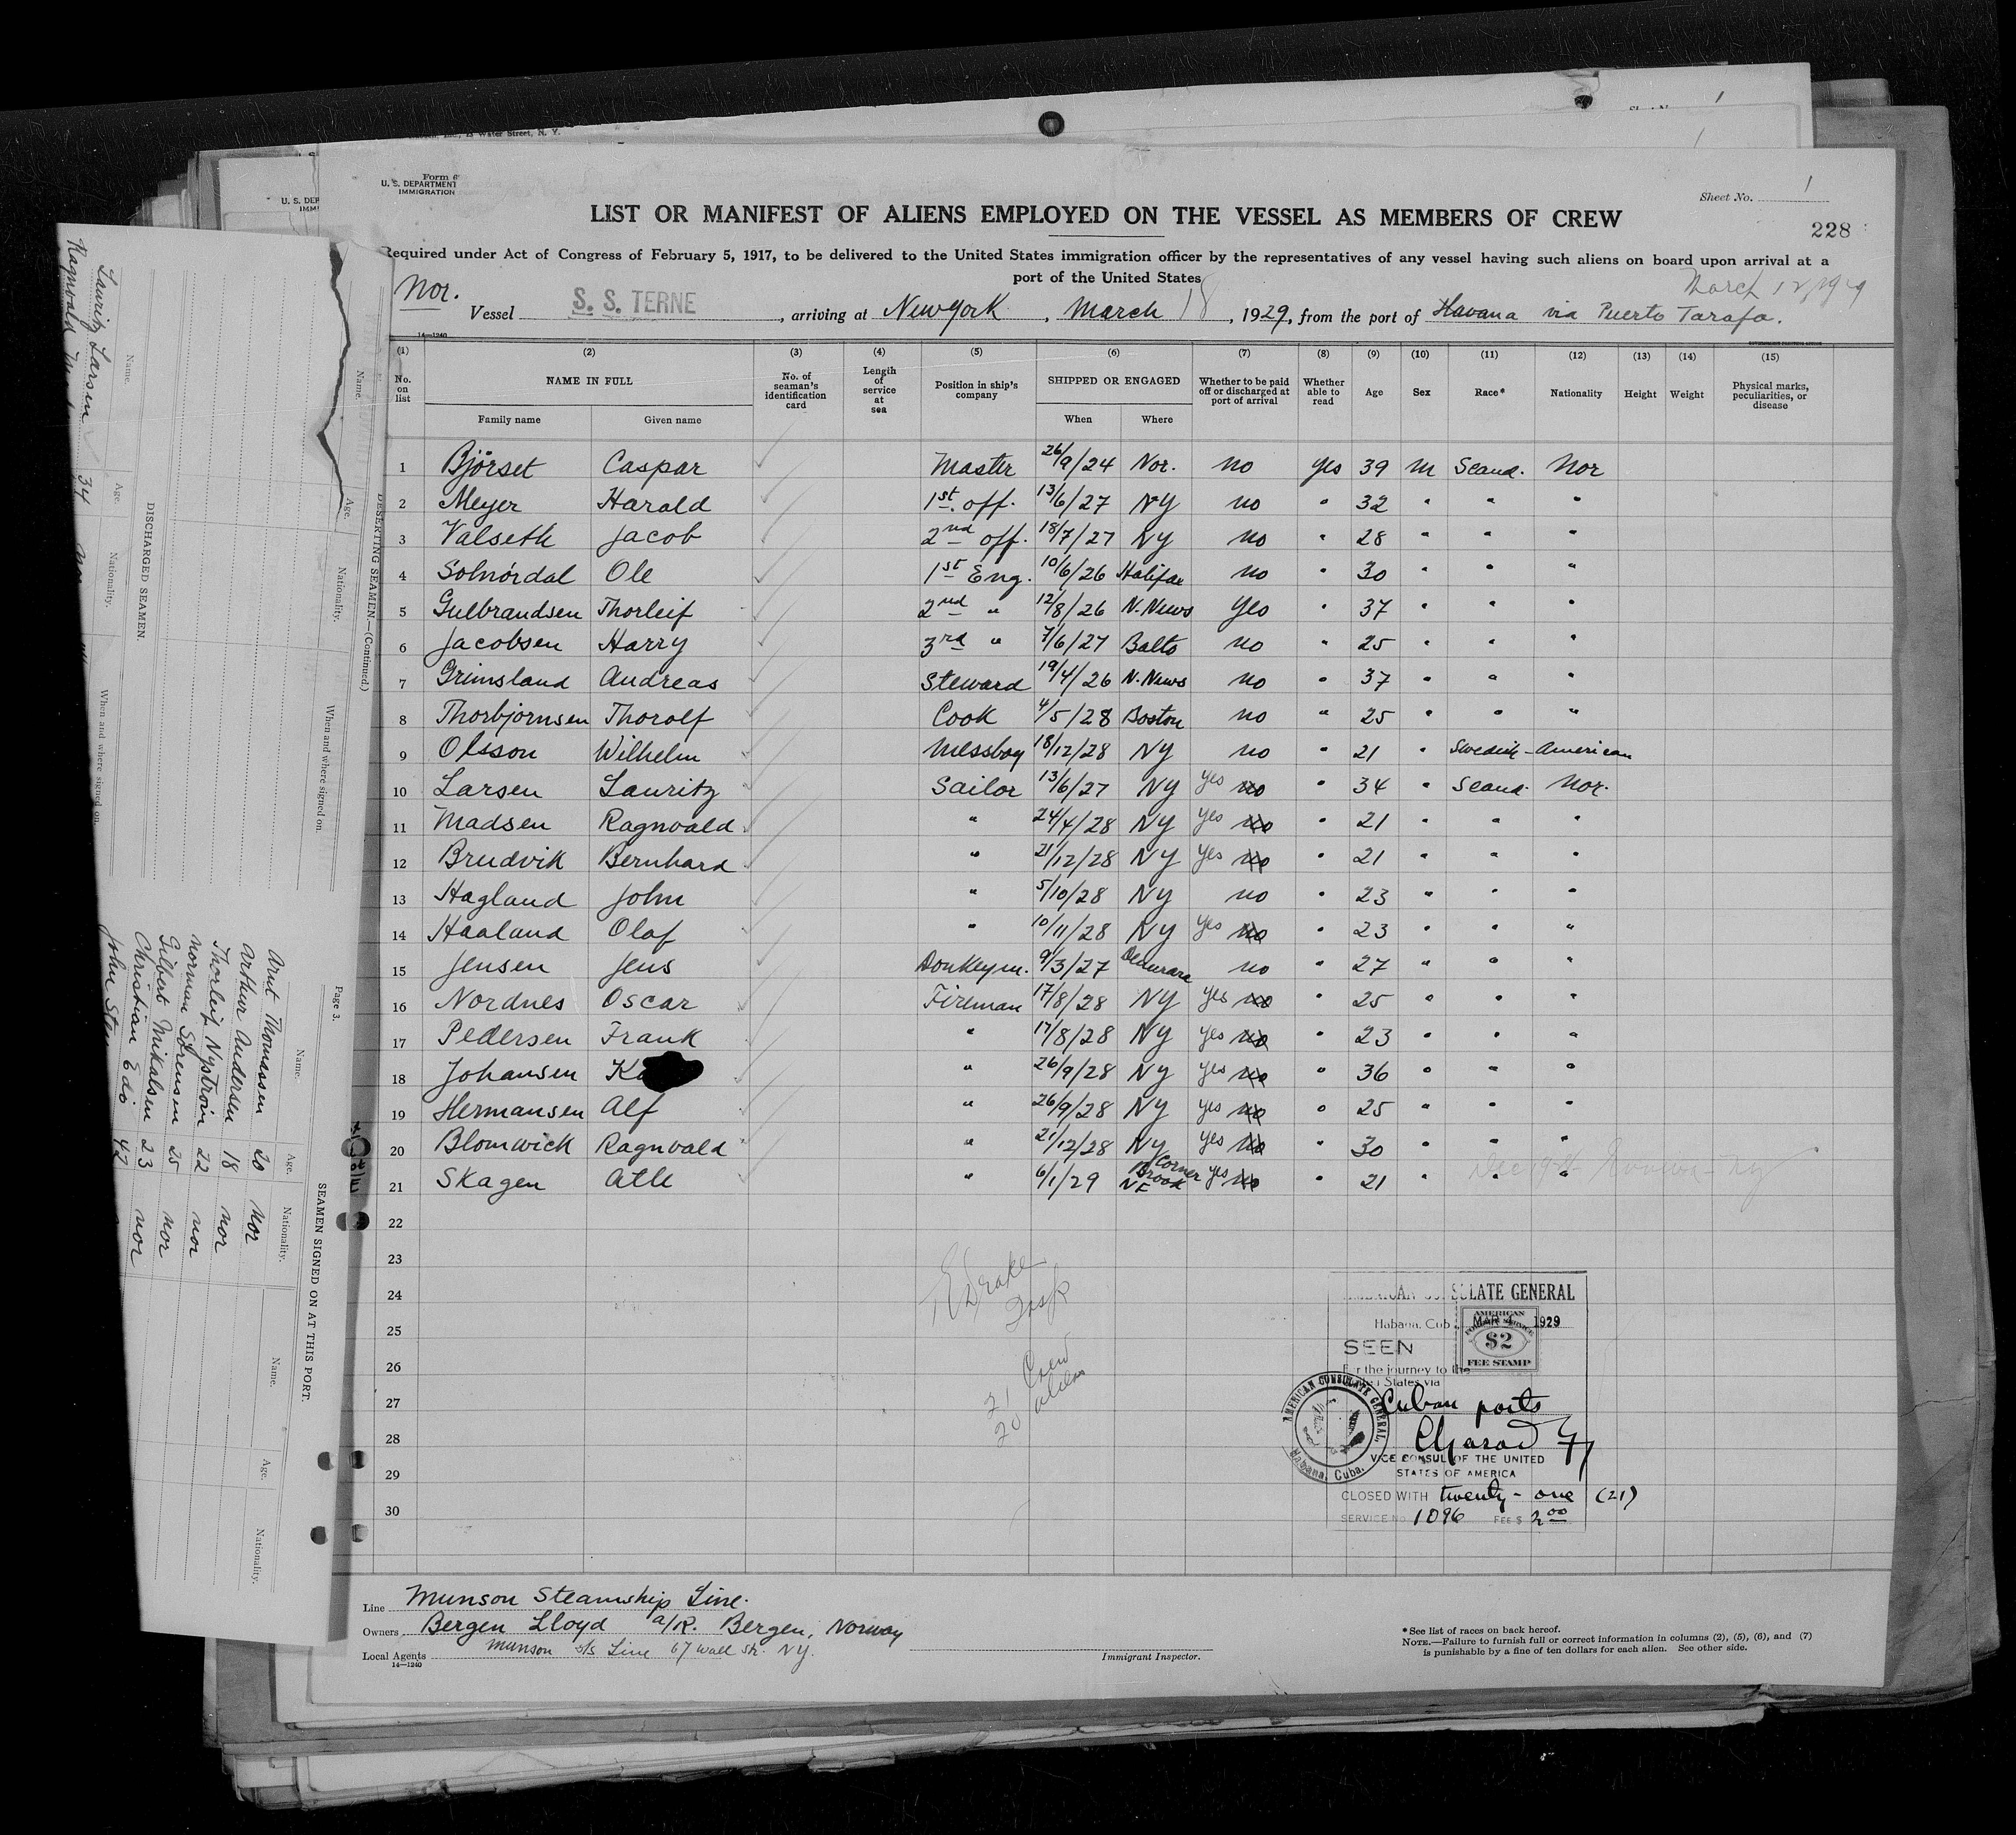 Water Street, N. Y.
Sheet No. 1
Form 6
U. S. DEPARTMENT
IMMIGRATION
LIST OR MANIFEST OF ALIENS EMPLOYED ON THE VESSEL AS MEMBERS OF CREW
228
Required under Act of Congress of February 5, 1917, to be delivered to the United States immigration officer by the representatives of any vessel having such aliens on board upon arrival at a
port of the United States
Nor. Vessel S. S. TERNE, arriving at New York, March 18, 1929, from the port of Havana via Puerto Tarafa.
14—1240
(1) (2) (3) (4) (5) (6) (7) (8) (9) (10) (11) (12) (13) (14) (15)
No. on list NAME IN FULL No. of seaman's identification card Length of service at sea Position in ship's company SHIPPED OR ENGAGED Whether to be paid off or discharged at port of arrival Whether able to read Age Sex Race* Nationality Height Weight Physical marks, peculiarities, or disease
Family name Given name When Where
1 Björset Caspar Master 26/9/24 Nor. no yes 39 m Scand. Nor
2 Meyer Harald 1st. off. 13/6/27 NY no " 32 " " "
3 Valseth Jacob 2nd off. 18/7/27 NY no " 28 " " "
4 Solnördal Ole 1st Eng. 10/6/26 Halifax no " 30 " " "
5 Gulbrandsen Thorleif 2nd " 12/8/26 N. News Yes " 37 " " "
6 Jacobsen Harry 3rd " 7/6/27 Balto no " 25 " " "
7 Grimsland Andreas Steward 19/4/26 N. News no " 37 " " "
8 Thorbjornsen Thorolf Cook 4/5/28 Boston no " 25 " " "
9 Olsson Wilhelm Messboy 18/12/28 NY no " 21 " Swedish - American
10 Larsen Lauritz Sailor 13/6/27 NY yes no " 34 " Scand. Nor.
11 Madsen Ragnvald " 24/4/28 NY yes no " 21 " " "
12 Brudvik Bernhard " 21/12/28 NY yes no " 21 " " "
13 Hagland John " 5/10/28 NY no " 23 " " "
14 Haaland Olaf " 10/11/28 NY yes no " 23 " " "
15 Jensen Jens Donkeym. 9/3/27 Demerara no " 27 " " "
16 Nordnes Oscar Fireman 17/8/28 NY yes no " 25 " " "
17 Pedersen Frank " 17/8/28 NY yes no " 23 " " "
18 Johansen Ka " 26/9/28 NY yes no " 36 " " "
19 Hermansen Alf " 26/9/28 NY yes no " 25 " " "
20 Blomwick Ragnvald " 21/12/28 NY yes no " 30 " " "
21 Skagen Atle " 6/1/29 Corner Brook NF yes no " 21 " " "
22
23
24
25
26
27
28
29
30
Drake
21 Crew
20 aliens
AMERICAN CONSULATE GENERAL
Habana, Cuba MAR 4 1929
AMERICAN FOREIGN SERVICE $2 FEE STAMP
SEEN
For the journey to the
United States via
Cuban ports
VICE CONSUL OF THE UNITED
STATES OF AMERICA
CLOSED WITH twenty-one (21)
SERVICE No. 1096 FEE $ 2.00
AMERICAN CONSULATE GENERAL. Habana, Cuba.
Line Munson Steamship Line.
Owners Bergen Lloyd a/R. Bergen, Norway
Local Agents Munson S/S Line 67 Wall Str. NY.
14—1240
Immigrant Inspector.
*See list of races on back hereof.
NOTE.—Failure to furnish full or correct information in columns (2), (5), (6), and (7)
is punishable by a fine of ten dollars for each alien. See other side.
DESERTING SEAMEN.—(Continued.)
Name. Age. Nationality. When and where signed on.
DISCHARGED SEAMEN.
Name. Age. Nationality. When and where signed on.
Lauritz Larsen 34
Ragnvald
Page 3.
SEAMEN SIGNED ON AT THIS PORT.
Name. Age. Nationality. Name. Age. Nationality.
Arnt Thomassen 20 nor
Arthur Andersen 18 nor
Thorleif Nyström 22 nor
Norman Sörensen 25 nor
Gilbert Mikalsen 23 nor
Christian Edö 47